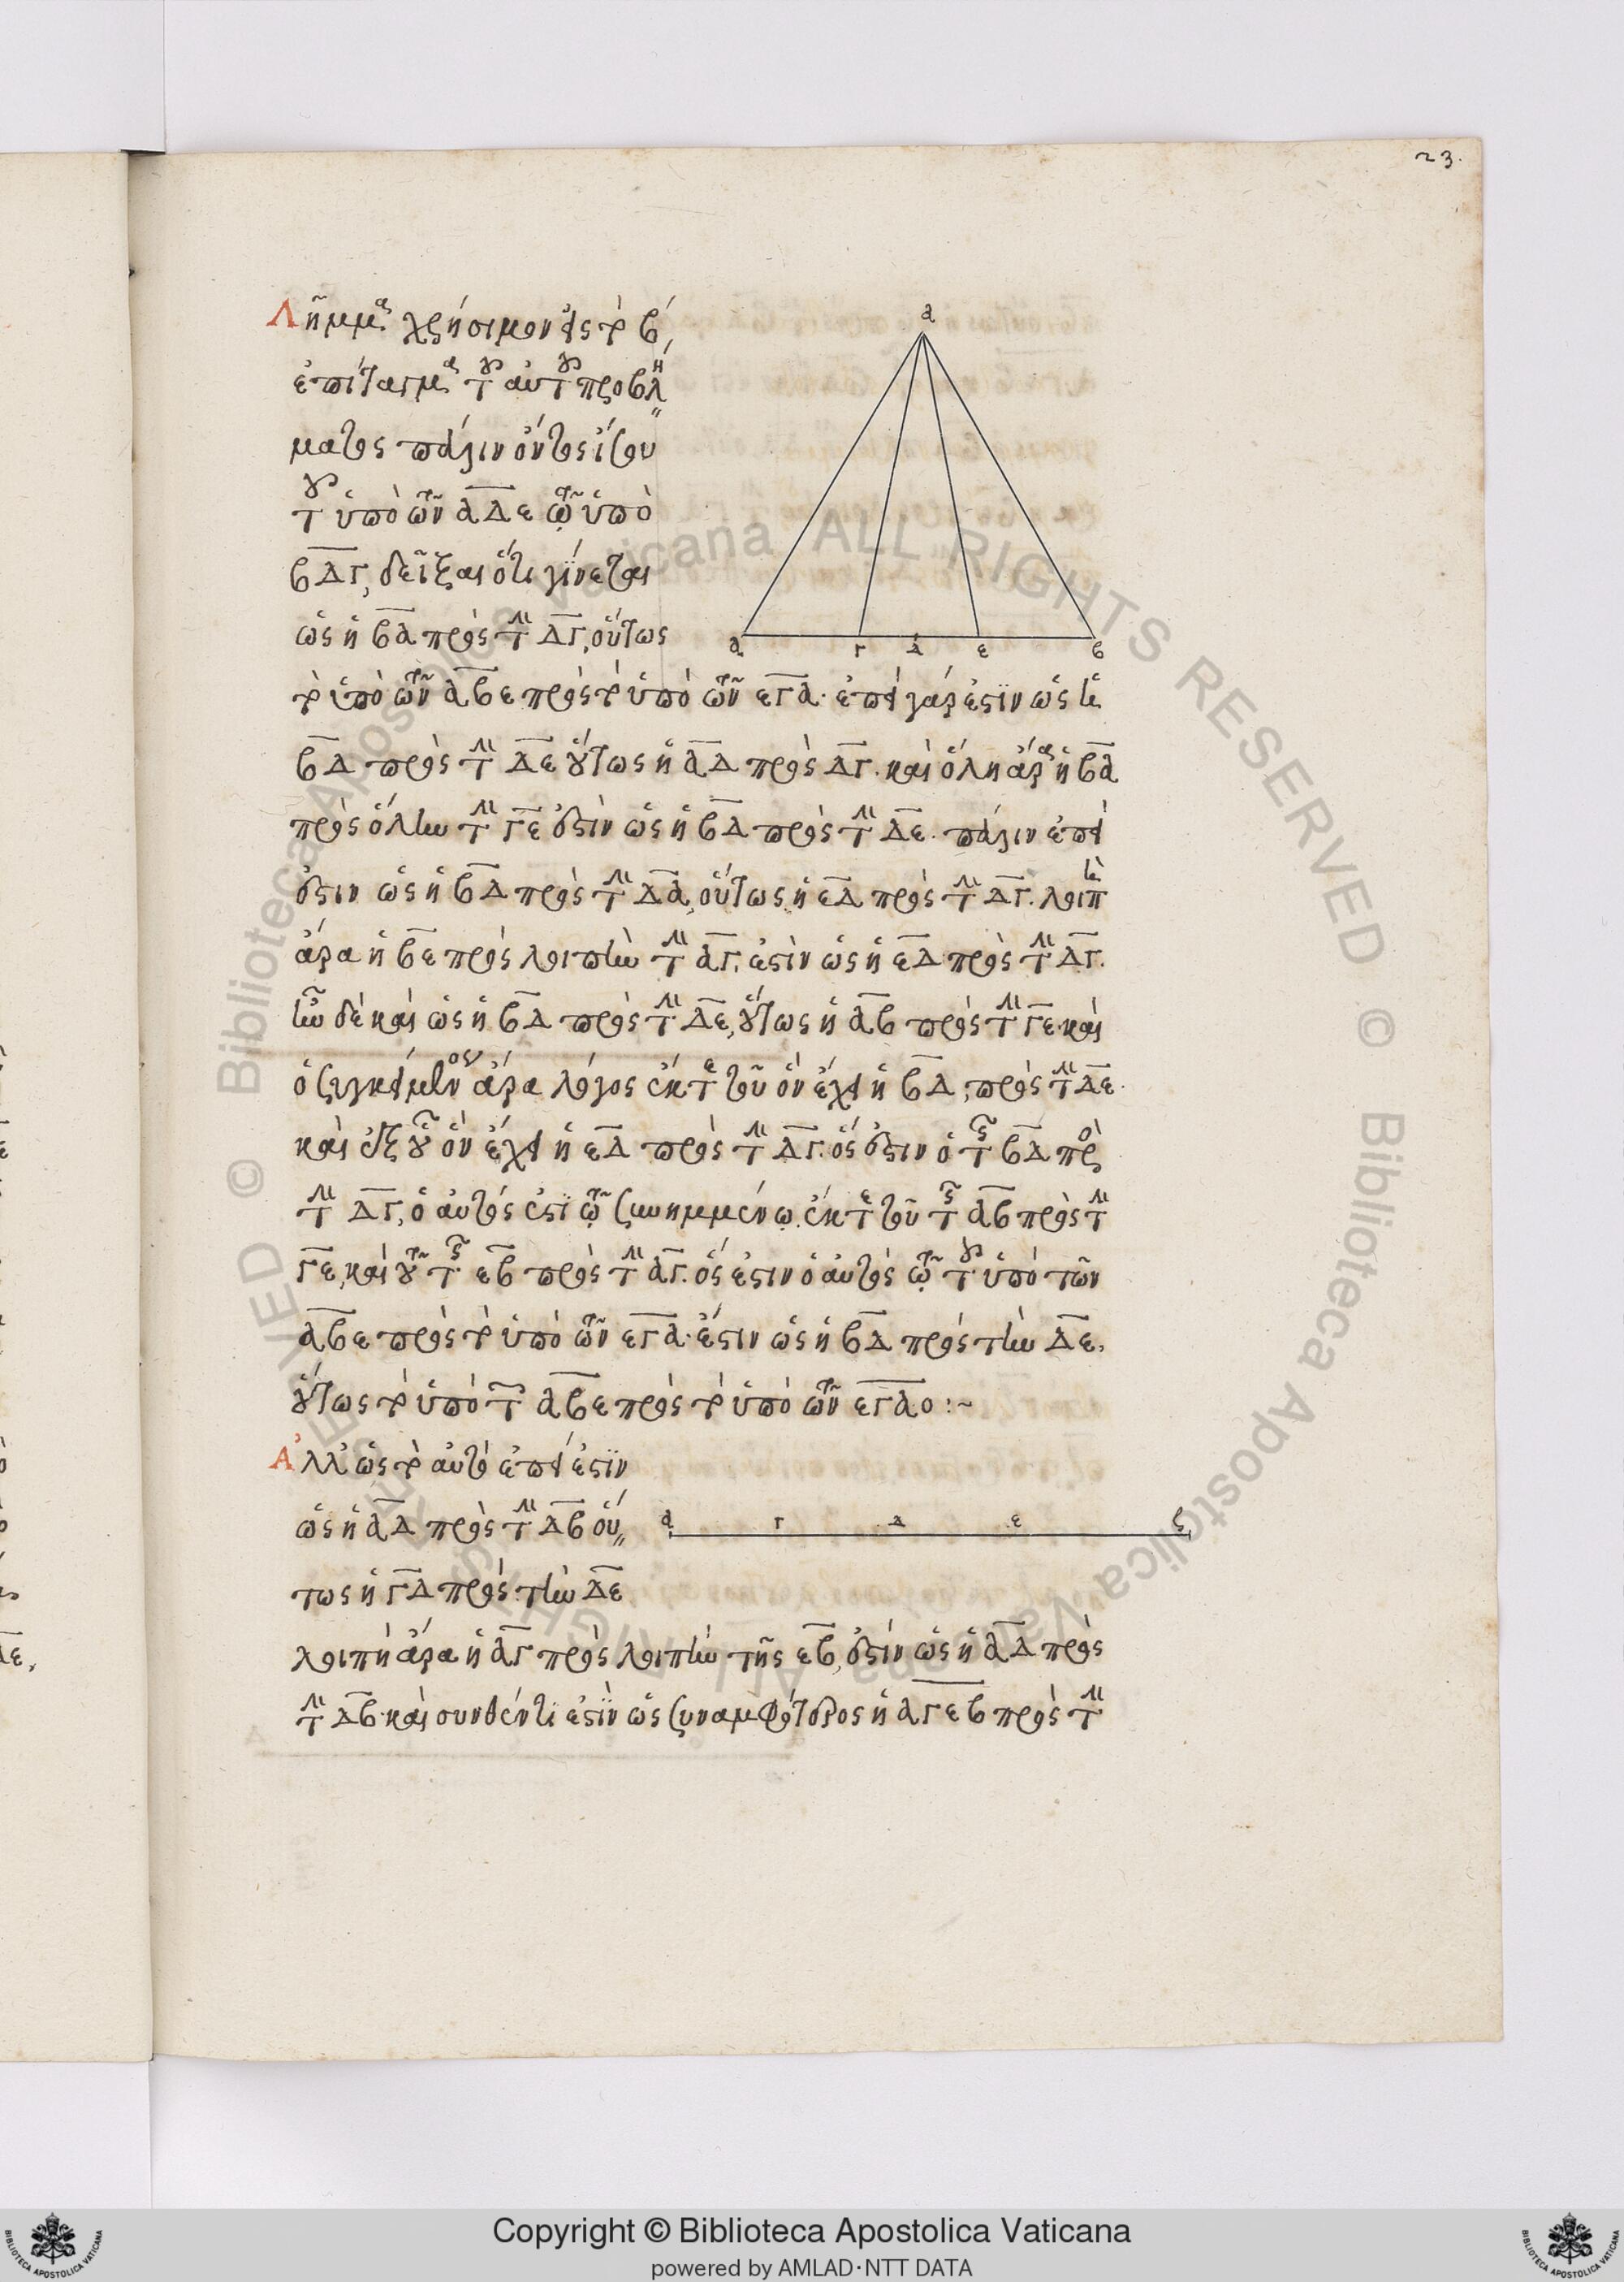 23.
Λῆμμα χρήσιμον εἰς τὸ β΄
ἐπίταγμα τοῦ αὐτοῦ προβλή
ματος πάλιν ὄντος ἴσου
τοῦ ὑπὸ τῶν ΑΔΕ τῷ ὑπὸ
ΒΔΓ, δεῖξαι ὅτι γίνεται
ὡς ἡ ΒΔ πρὸς τὴν ΔΓ, οὕτως
τὸ ὑπὸ τῶν ΑΒΕ πρὸς τὸ ὑπὸ τῶν ΕΓΑ· ἐπεὶ γάρ ἐστιν ὡς ἡ
ΒΔ πρὸς τὴν ΔΕ οὕτως ἡ ΑΔ πρὸς ΔΓ. καὶ ὅλη ἄρα ἡ ΒΑ
πρὸς ὅλην τὴν ΓΕ ἐστὶν ὡς ἡ ΒΔ πρὸς τὴν ΔΕ. πάλιν ἐπεί
ἐστιν ὡς ἡ ΒΔ πρὸς τὴν ΔΑ, οὕτως ἡ ΕΔ πρὸς τὴν ΔΓ. λοιπὴ
ἄρα ἡ ΒΕ πρὸς λοιπὴν τὴν ΑΓ, ἐστὶν ὡς ἡ ΕΔ πρὸς τὴν ΔΓ.
ἦν δὲ καὶ ὡς ἡ ΒΔ πρὸς τὴν ΔΕ, οὕτως ἡ ΑΒ πρὸς τὴν ΓΕ. καὶ
ὁ συγκείμενος ἄρα λόγος ἔκ τε τοῦ ὃν ἔχει ἡ ΒΔ, πρὸς τὴν ΔΕ.
καὶ ἐξ οὗ ὃν ἔχει ἡ ΕΔ πρὸς τὴν ΔΓ. ὅς ἐστιν ὁ τῆς ΒΔ πρὸς
τὴν ΔΓ, ὁ αὐτός ἐστι τῷ συνημμένῳ ἔκ τε τοῦ τῆς ΑΒ πρὸς τὴν
ΓΕ, καὶ τοῦ τῆς ΕΒ πρὸς τὴν ΑΓ. ὅς ἐστιν ὁ αὐτὸς τῷ τοῦ ὑπὸ τῶν
ΑΒΕ πρὸς τὸ ὑπὸ τῶν ΕΓΑ. ἔστιν ὡς ἡ ΒΔ πρὸς τὴν ΔΕ,
οὕτως τὸ ὑπὸ τῶν ΑΒΕ πρὸς τὸ ὑπὸ τῶν ΕΓΑ ο :~
Ἄλλως τὸ αὐτό ἐπεί ἐστιν
ὡς ἡ ΑΔ πρὸς τὴν ΔΒ οὕ
τως ἡ ΓΔ πρὸς τὴν ΔΕ
λοιπὴ ἄρα ἡ ΑΓ πρὸς λοιπὴν τῆς ΕΒ, ἐστὶν ὡς ἡ ΑΔ πρὸς
τὴν ΔΒ. καὶ συνθέντι ἐστὶν ὡς συναμφότερος ἡ ΑΓ ΕΒ πρὸς τὴν
α
α Γ Δ ε β
α Γ Δ ε ζ
© Biblioteca Apostolica Vaticana ALL RIGHTS RESERVED © Biblioteca Apostolica Vaticana ALL RIGHTS RESERVED
Copyright © Biblioteca Apostolica Vaticana
powered by AMLAD·NTT DATA
BIBLIOTECA APOSTOLICA VATICANA
BIBLIOTECA APOSTOLICA VATICANA